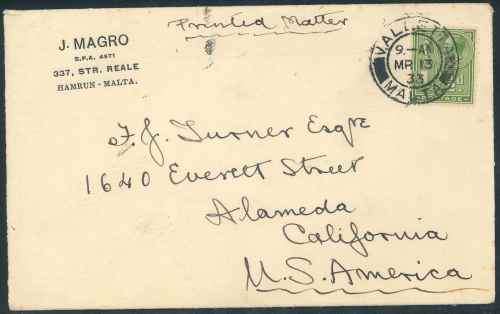 Printed Matter
J. MAGRO
S.P.E. 4571
337, STR. REALE
HAMRUN - MALTA.
VALLETTA
9.-AM
MR 13
33
MALTA
POSTAGE
F. J. Turner Esqre
1640 Everett Street
Alameda
California
U.S. America